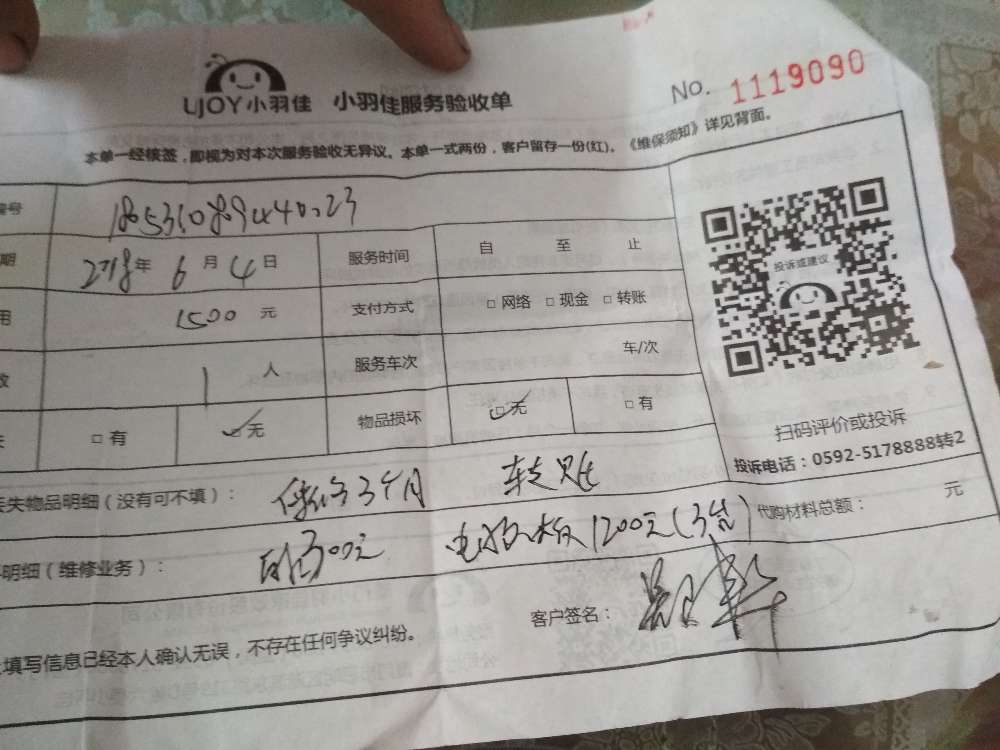 LJOY小羽佳 小羽佳服务验收单
No. 1119090
本单一经核签，即视为对本次服务验收无异议。本单一式两份，客户留存一份(红)。《维保须知》详见背面。
编号
期 2018年 6月 4日 服务时间 自 至 止
用 1500元 支付方式 □ 网络 □ 现金 □ 转账
1 人 服务车次 车/次
失 □ 有 ☑ 无 物品损坏 ☑ 无 □ 有
投诉或建议
扫码评价或投诉
投诉电话：0592-5178888转2
丢失物品明细（没有可不填）： 3个月
明细（维修业务）： 300元 电脑板1200元(3台) 代购材料总额： 元
客户签名：
填写信息已经本人确认无误，不存在任何争议纠纷。